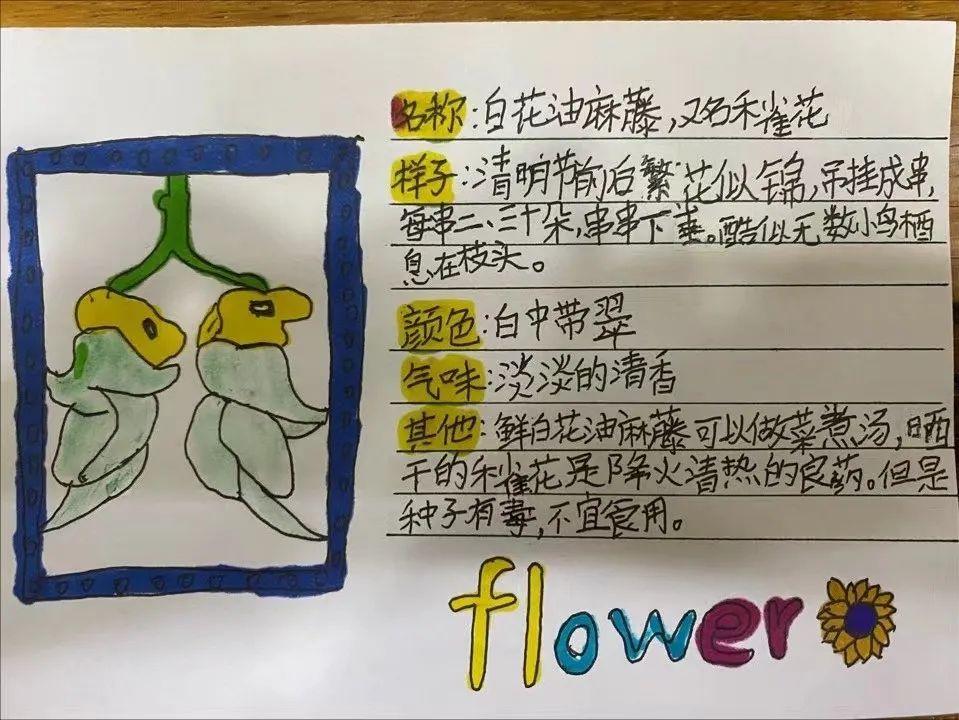 名称:白花油麻藤,又名禾雀花
样子:清明节前后繁花似锦,吊挂成串,
每串二、三十朵,串串下垂。酷似无数小鸟栖
息在枝头。
颜色:白中带翠
气味:淡淡的清香
其他:鲜白花油麻藤可以做菜煮汤,晒
干的禾雀花是降火清热的良药。但是
种子有毒,不宜食用。
flower